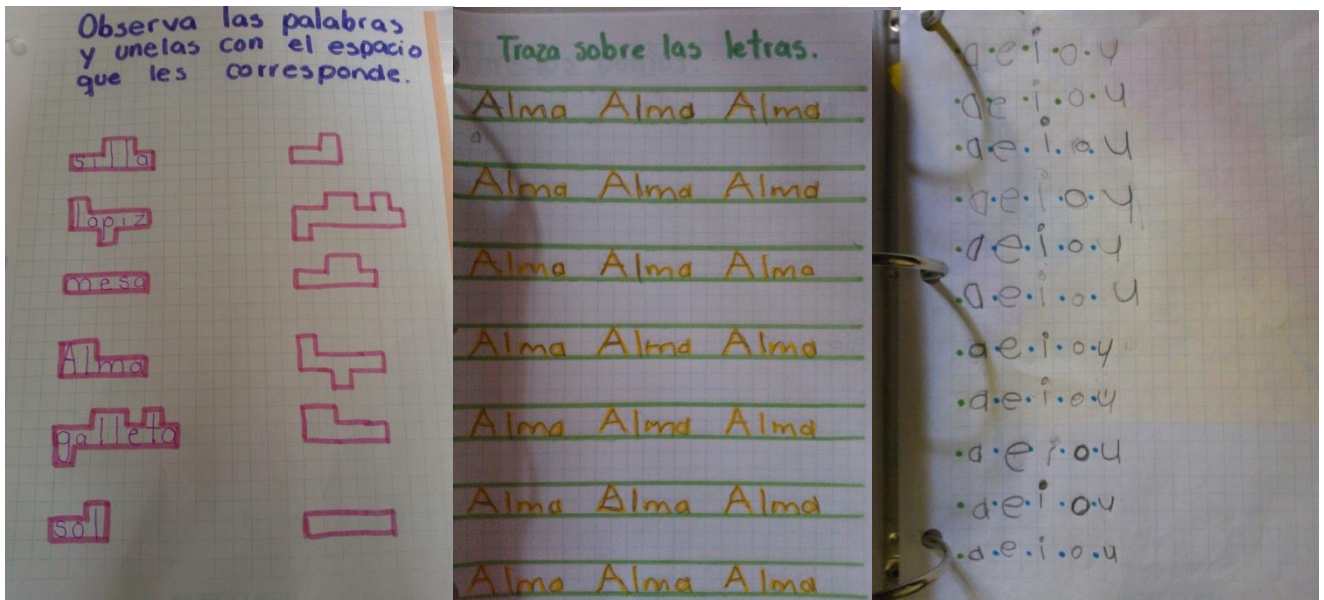 Observa las palabras
y unelas con el espacio
que les corresponde.
silla
lapiz
mesa
Alma
galleta
sol
Traza sobre las letras.
Alma Alma Alma
a
Alma Alma Alma
Alma Alma Alma
Alma Alma Alma
Alma Alma Alma
Alma Alma Alma
Alma Alma Alma
a e i o u
a e i o u
a e i o u
a e i o u
a e i o u
a e i o u
a e i o u
a e i o u
a e i o u
a e i o u
a e i o u